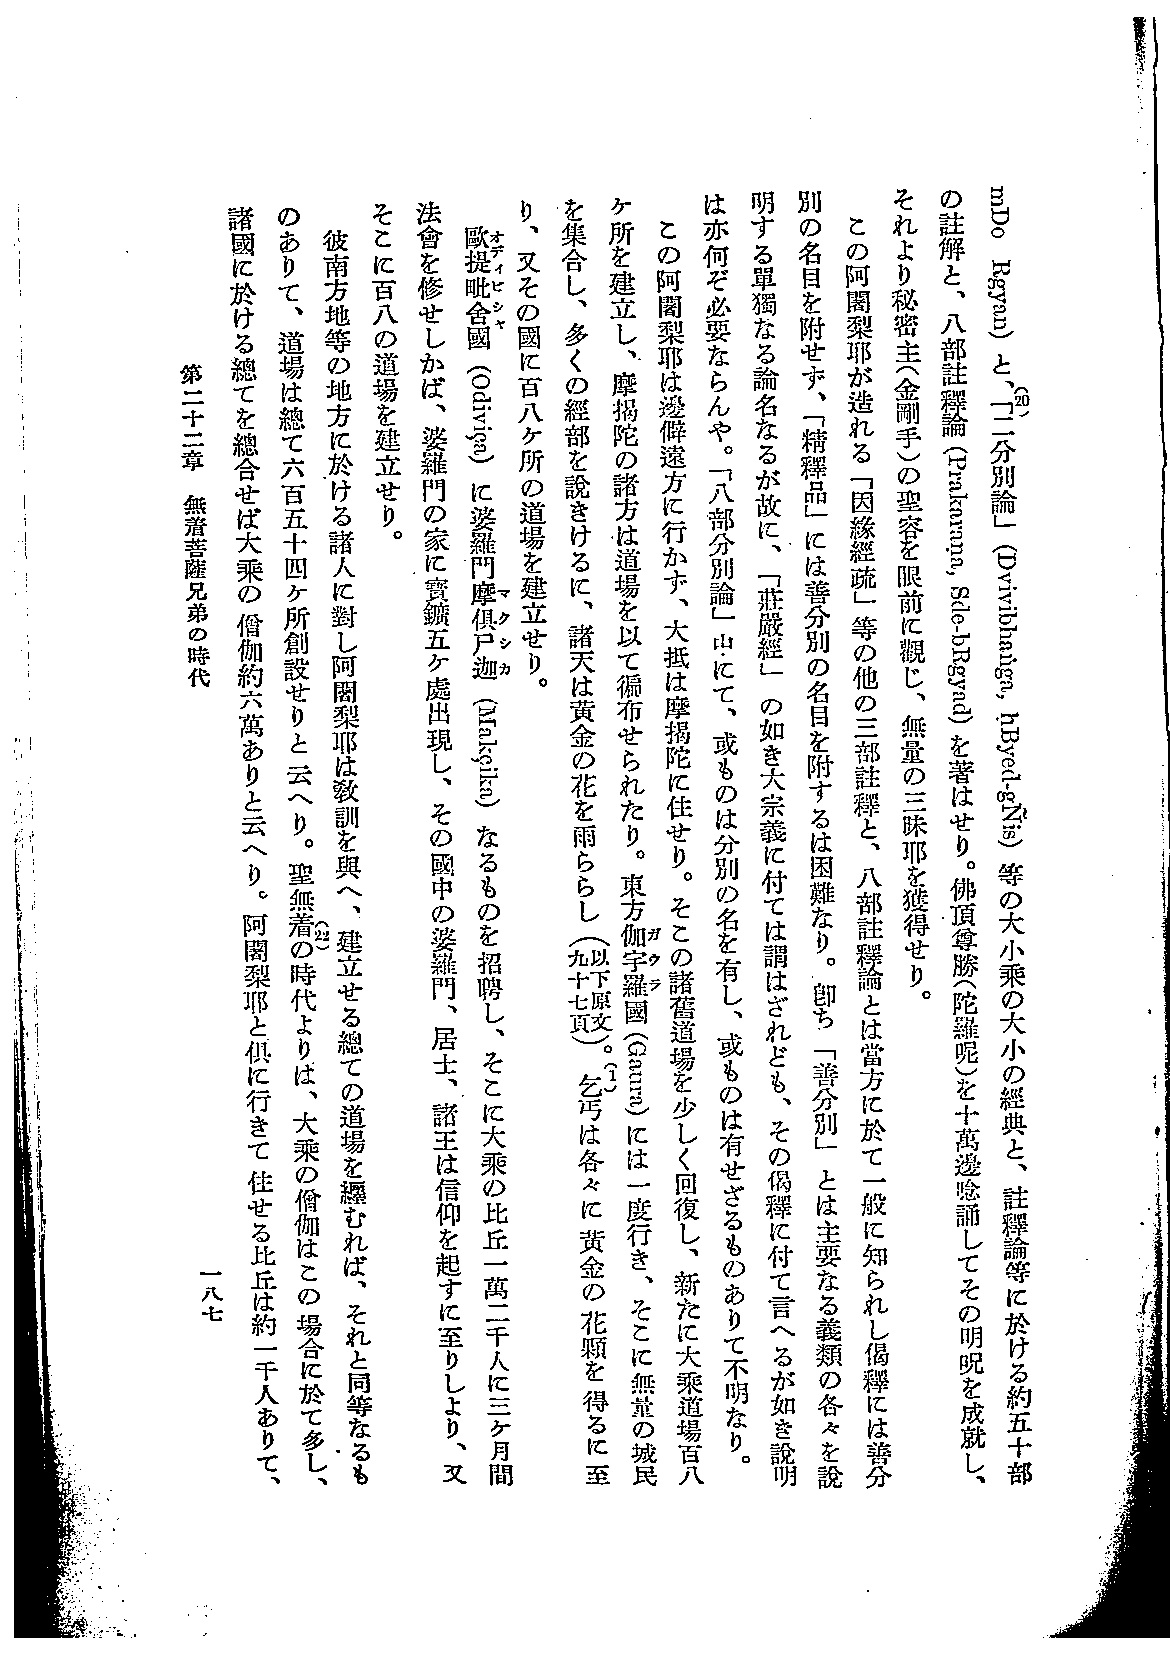 mDo Rgyan) と、「二分別論」(20)(Dvivibhaṅga, ḥByed-gÑis) 等の大小乘の大小の經典と、註釋論等に於ける約五十部
の註解と、八部註釋論 (Prakaraṇa, Sde-bRgyad) を著はせり。佛頂尊勝(陀羅呢)を十萬邊唸誦してその明呪を成就し、
それより秘密主(金剛手)の聖容を眼前に觀じ、無量の三昧耶を獲得せり。
この阿闍梨耶が造れる「因緣經疏」等の他の三部註釋と、八部註釋論とは當方に於て一般に知られし偈釋には善分
別の名目を附せず、「精釋品」には善分別の名目を附するは困難なり。卽ち「善分別」とは主要なる義類の各々を說
明する單獨なる論名なるが故に、「莊嚴經」の如き大宗義に付ては謂はざれども、その偈釋に付て言へるが如き說明
は亦何ぞ必要ならんや。「八部分別論」中にて、或ものは分別の名を有し、或ものは有せざるものありて不明なり。
この阿闍梨耶は邊僻遠方に行かず、大抵は摩揭陀に住せり。そこの諸舊道場を少しく回復し、新たに大乘道場百八
ヶ所を建立し、摩揭陀の諸方は道場を以て徧布せられたり。東方伽宇羅國(ガウラ)(Gaura) には一度行き、そこに無量の城民
を集合し、多くの經部を說きけるに、諸天は黃金の花を雨らし(以下原文九十七頁)。(1)乞丐は各々に黃金の花顆を得るに至
り、又その國に百八ヶ所の道場を建立せり。
歐提毗舍國(オディビシャ) (Odiviça) に婆羅門摩俱尸迦(マクシカ) (Makçika) なるものを招聘し、そこに大乘の比丘一萬二千人に三ヶ月間
法會を修せしかば、婆羅門の家に寶鑛五ヶ處出現し、その國中の婆羅門、居士、諸王は信仰を起すに至りしより、又
そこに百八の道場を建立せり。
彼南方地等の地方に於ける諸人に對し阿闍梨耶は敎訓を與へ、建立せる總ての道場を纒むれば、それと同等なるも
のありて、道場は總て六百五十四ヶ所創設せりと云へり。聖無着(22)の時代よりは、大乘の僧伽はこの場合に於て多し、
諸國に於ける總てを總合せば大乘の僧伽約六萬ありと云へり。阿闍梨耶と俱に行きて住せる比丘は約一千人ありて、
第二十二章 無着菩薩兄弟の時代
一八七